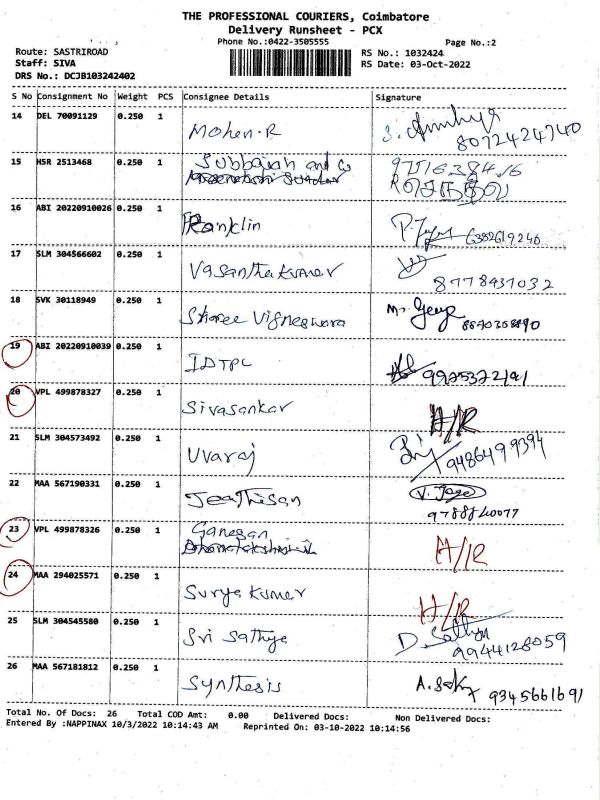 THE PROFESSIONAL COURIERS, Coimbatore
Delivery Runsheet - PCX
Phone No.:0422-3505555 Page No.:2
Route: SASTRIROAD RS No.: 1032424
Staff: SIVA RS Date: 03-Oct-2022
DRS No.: DCJB103242402
S No Consignment No Weight PCS Consignee Details Signature
14 DEL 70091129 0.250 1 Mohen.R
8072424740
15 HSR 2513468 0.250 1 Subbaiah and Co
16 ABI 20220910026 0.250 1 Franklin
6382619246
17 SLM 304566602 0.250 1 Vasanthakumar
8778437032
18 SVK 30118949 0.250 1 Sharee Vigneswara
19 ABI 20220910039 0.250 1 IDTPL
20 VPL 499878327 0.250 1 Sivasankar H/R
21 SLM 304573492 0.250 1 Uvaraj
9486499394
22 MAA 567190331 0.250 1 Jeathisan
23 VPL 499878326 0.250 1 Ganesan H/R
24 MAA 294025571 0.250 1 Surya Kumar H/R
25 SLM 304545580 0.250 1 Sri Sathya D. Sathya
9944128059
26 MAA 567181812 0.250 1 Synthesis
9345661691
Total No. Of Docs: 26 Total COD Amt: 0.00 Delivered Docs: Non Delivered Docs:
Entered By :NAPPINAX 10/3/2022 10:14:43 AM Reprinted On: 03-10-2022 10:14:56